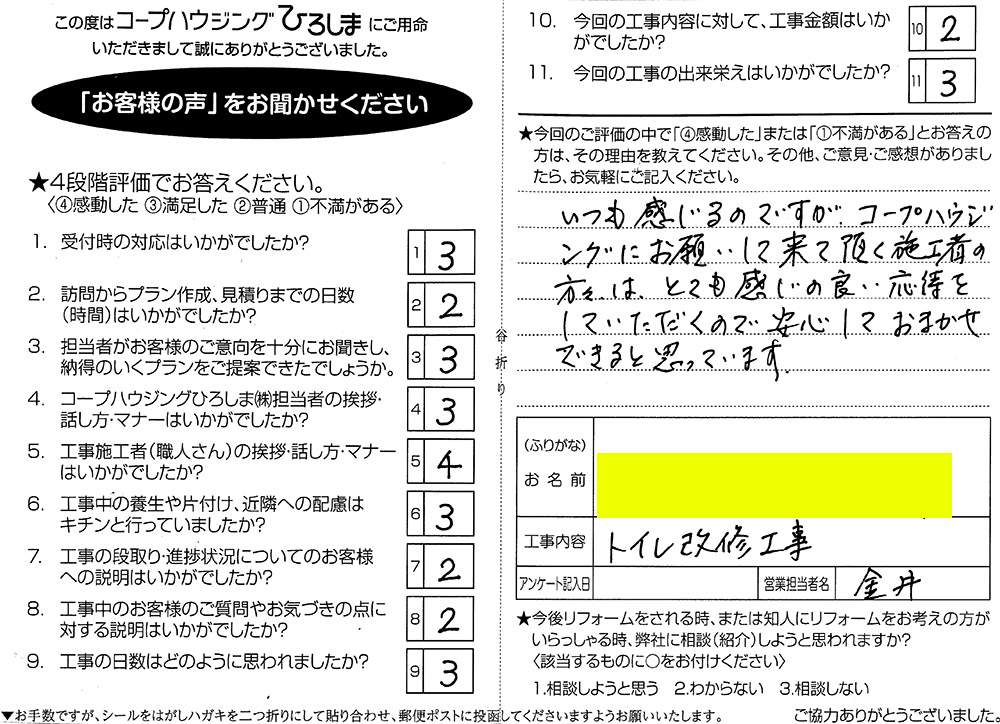 この度はコープハウジングひろしまにご用命
いただきまして誠にありがとうございました。
「お客様の声」をお聞かせください
★4段階評価でお答えください。
〈④感動した ③満足した ②普通 ①不満がある〉
1. 受付時の対応はいかがでしたか?
1 3
2. 訪問からプラン作成、見積りまでの日数
(時間)はいかがでしたか?
2 2
3. 担当者がお客様のご意向を十分にお聞きし、
納得のいくプランをご提案できたでしょうか。
3 3
4. コープハウジングひろしま㈱担当者の挨拶・
話し方・マナーはいかがでしたか?
4 3
5. 工事施工者(職人さん)の挨拶・話し方・マナー
はいかがでしたか?
5 4
6. 工事中の養生や片付け、近隣への配慮は
キチンと行っていましたか?
6 3
7. 工事の段取り・進捗状況についてのお客様
への説明はいかがでしたか?
7 2
8. 工事中のお客様のご質問やお気づきの点に
対する説明はいかがでしたか?
8 2
9. 工事の日数はどのように思われましたか?
9 3
▼お手数ですが、シールをはがしハガキを二つ折りにして貼り合わせ、郵便ポストに投函してくださいますようお願いいたします。
谷折り
10. 今回の工事内容に対して、工事金額はいか
がでしたか?
10 2
11. 今回の工事の出来栄えはいかがでしたか?
11 3
★今回のご評価の中で「④感動した」または「①不満がある」とお答えの
方は、その理由を教えてください。その他、ご意見・ご感想がありまし
たら、お気軽にご記入ください。
いつも感じるのですが、コープハウジ
ングにお願いして来て頂く施工者の
方々は、とても感じの良い応待を
していただくので安心しておまかせ
できると思っています。
(ふりがな)
お名前
工事内容 トイレ改修工事
アンケート記入日 営業担当者名 金井
★今後リフォームをされる時、または知人にリフォームをお考えの方が
いらっしゃる時、弊社に相談(紹介)しようと思われますか?
〈該当するものに○をお付けください〉
1.相談しようと思う 2.わからない 3.相談しない
ご協力ありがとうございました。